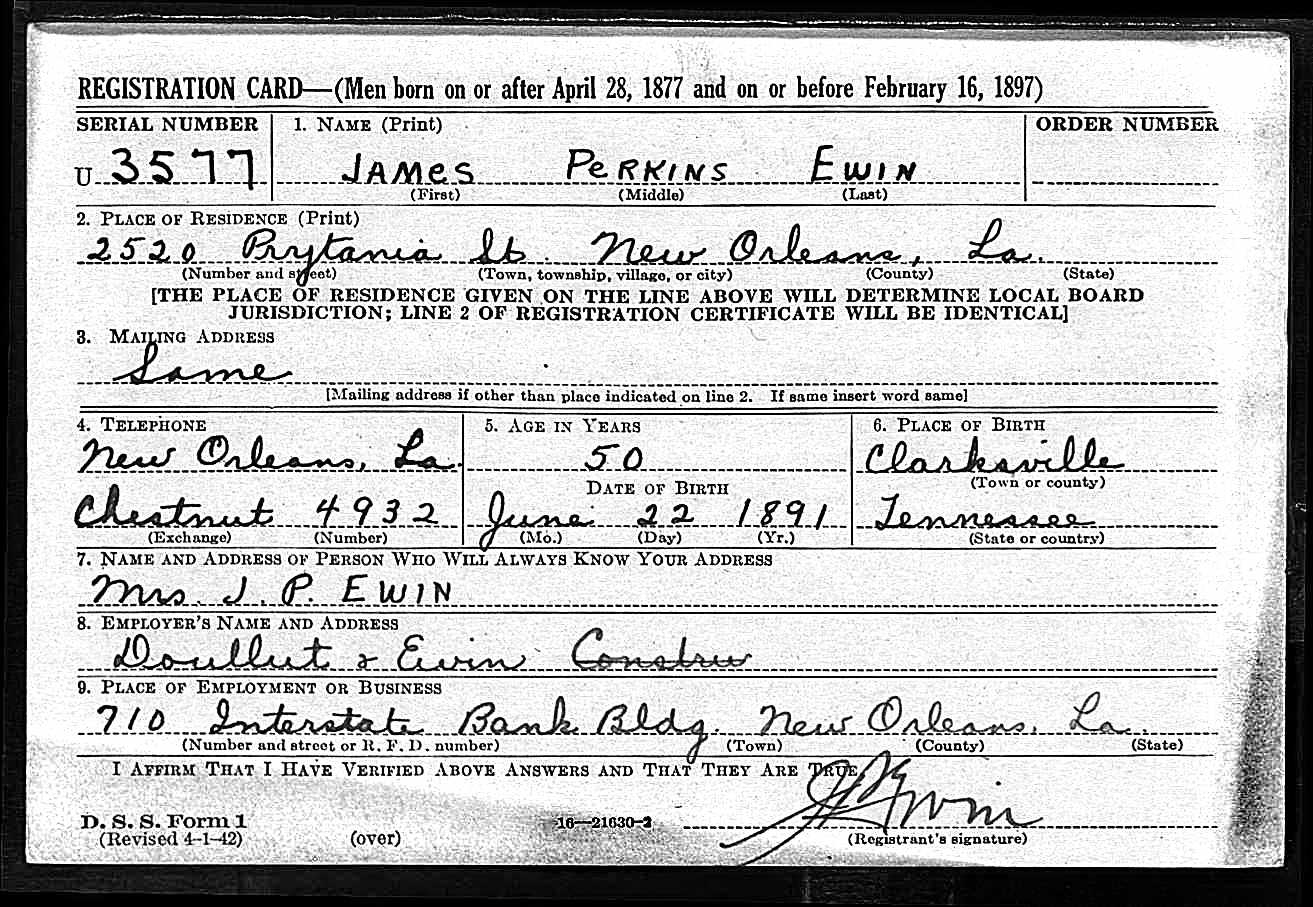 REGISTRATION CARD—(Men born on or after April 28, 1877 and on or before February 16, 1897)
SERIAL NUMBER 1. NAME (Print) ORDER NUMBER
U 3577 JAMES PERKINS EWIN
(First) (Middle) (Last)
2. PLACE OF RESIDENCE (Print)
2520 Prytania St. New Orleans, La.
(Number and street) (Town, township, village, or city) (County) (State)
[THE PLACE OF RESIDENCE GIVEN ON THE LINE ABOVE WILL DETERMINE LOCAL BOARD
JURISDICTION; LINE 2 OF REGISTRATION CERTIFICATE WILL BE IDENTICAL]
3. MAILING ADDRESS
Same
[Mailing address if other than place indicated on line 2. If same insert word same]
4. TELEPHONE 5. AGE IN YEARS 6. PLACE OF BIRTH
New Orleans, La. 50 Clarksville
DATE OF BIRTH (Town or county)
Chestnut 4932 June 22 1891 Tennessee
(Exchange) (Number) (Mo.) (Day) (Yr.) (State or country)
7. NAME AND ADDRESS OF PERSON WHO WILL ALWAYS KNOW YOUR ADDRESS
Mrs. J. P. EWIN
8. EMPLOYER'S NAME AND ADDRESS
Doullut & Ewin Constru
9. PLACE OF EMPLOYMENT OR BUSINESS
710 Interstate Bank Bldg. New Orleans, La.
(Number and street or R. F. D. number) (Town) (County) (State)
I AFFIRM THAT I HAVE VERIFIED ABOVE ANSWERS AND THAT THEY ARE TRUE.
JPEwin
D. S. S. Form 1
(Revised 4-1-42) (over) 16—21630-2 (Registrant's signature)